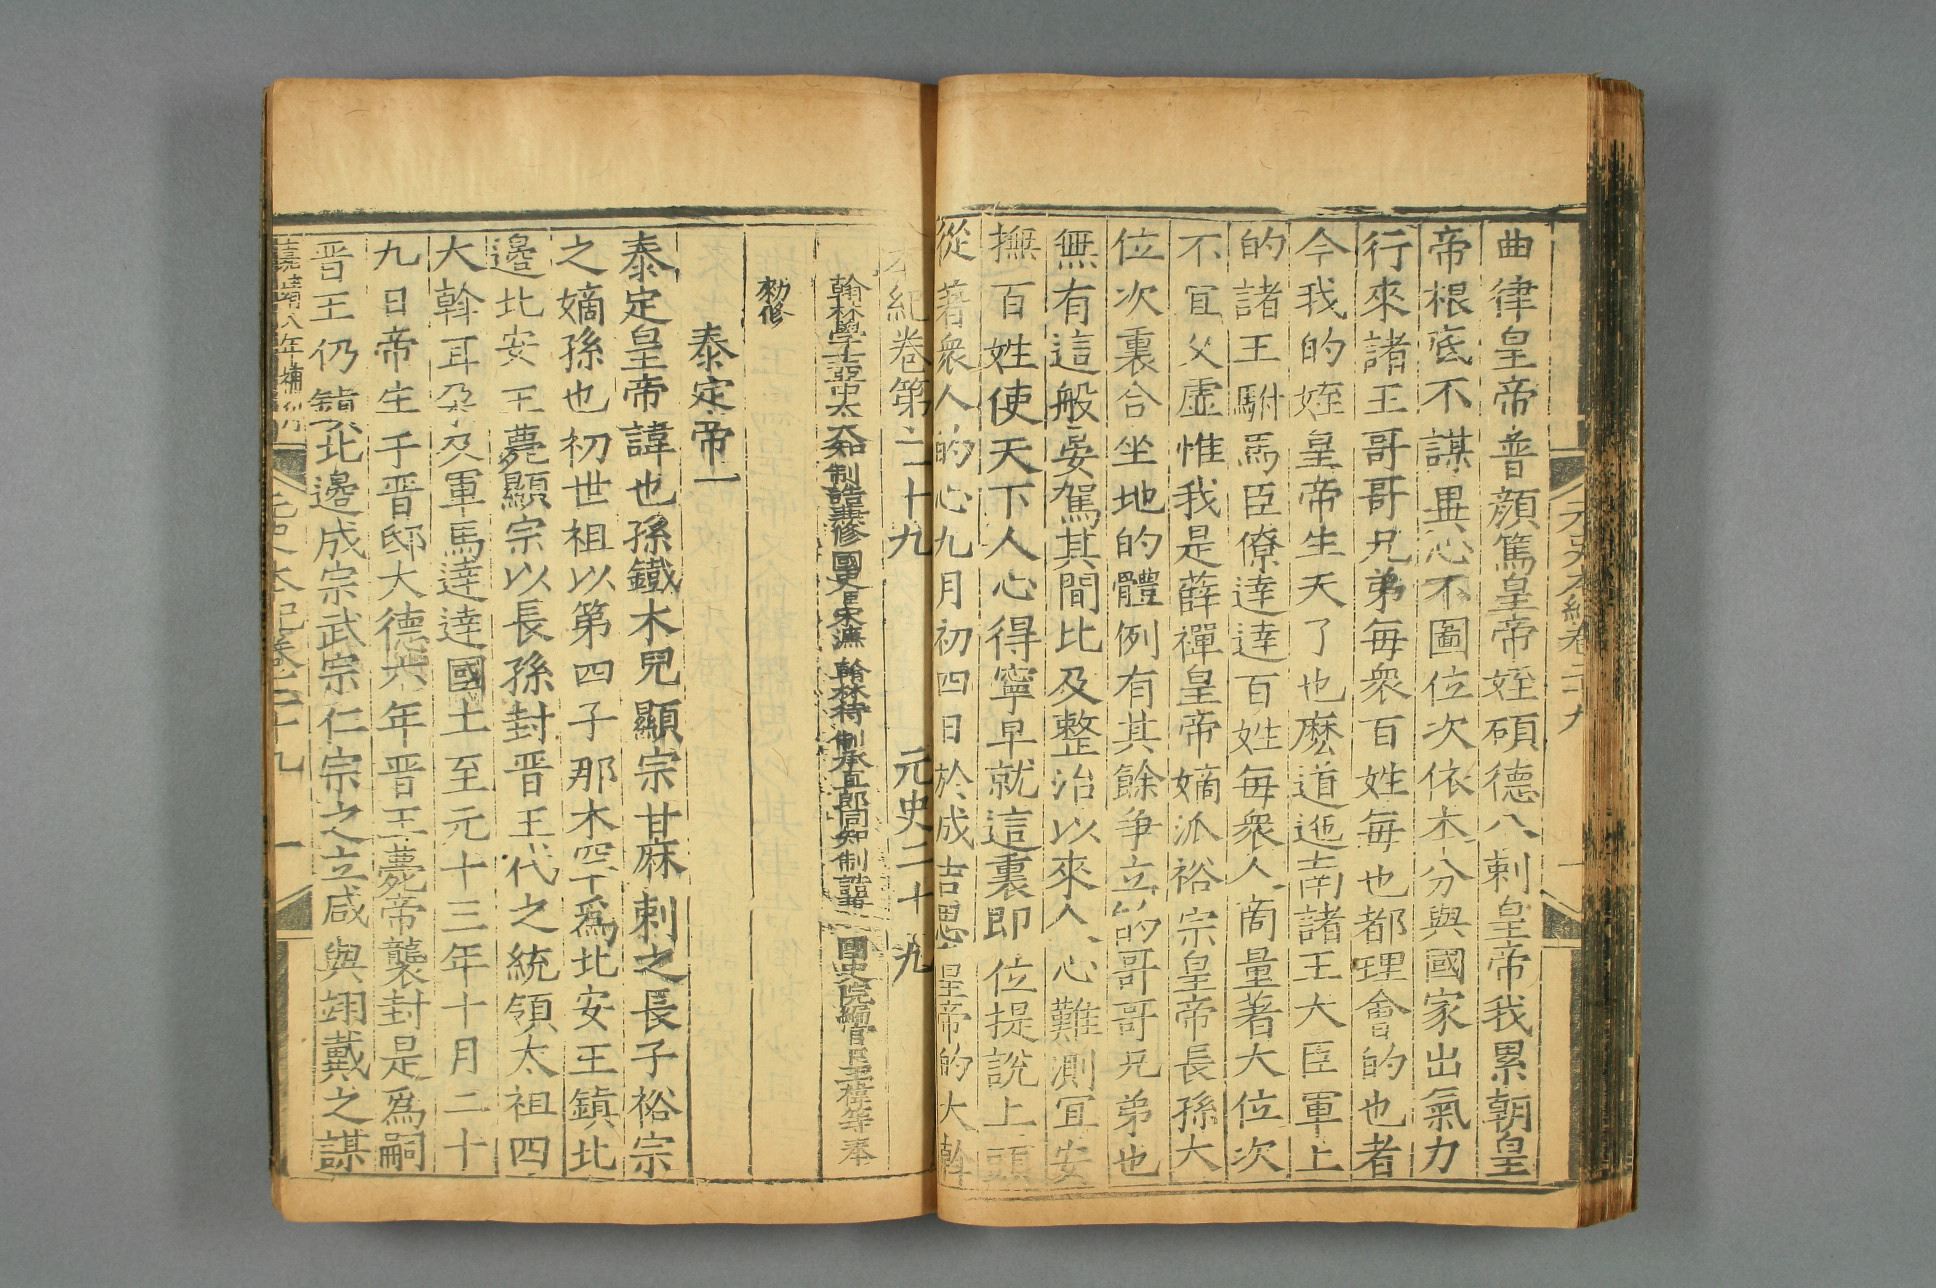 元史本紀卷二十九
曲律皇帝普顏篤皇帝姪碩德八剌皇帝我累朝皇
帝根底不謀異心不圖位次依本分與國家出氣力
行來諸王哥哥兄弟每衆百姓每也都理會的也者
今我的姪皇帝生天了也麽道迤南諸王大臣軍上
的諸王駙馬臣僚達達百姓每衆人商量著大位次
不冝父虛惟我是薛禪皇帝嫡派裕宗皇帝長孫大
位次裏合坐地的體例有其餘爭立的哥哥兄弟也
無有這般晏駕其間比及整治以來人心難測冝安
撫百姓使天下人心得寧早就這裏即位提說上頭
從著衆人的心九月初四日於成吉思皇帝的大斡
本紀卷第二十九 元史二十九
翰林學士亞中大夫知制誥兼修國史臣宋濂 翰林待制承直郎同知制誥兼 國史院編官臣王禕等奉
勑修
泰定帝一
泰定皇帝諱也孫鐵木兒顯宗甘麻剌之長子裕宗
之嫡孫也初世祖以第四子那木罕爲北安王鎮北
邊北安王薨顯宗以長孫封晋王代之統領太祖四
大斡耳朶及軍馬達達國土至元十三年十月二十
九日帝生于晋邸大德六年晋王薨帝襲封是爲嗣
晋王仍鎮北邊成宗武宗仁宗之立咸與翊戴之謀
嘉靖八年補刊 元史本紀卷二十九 一